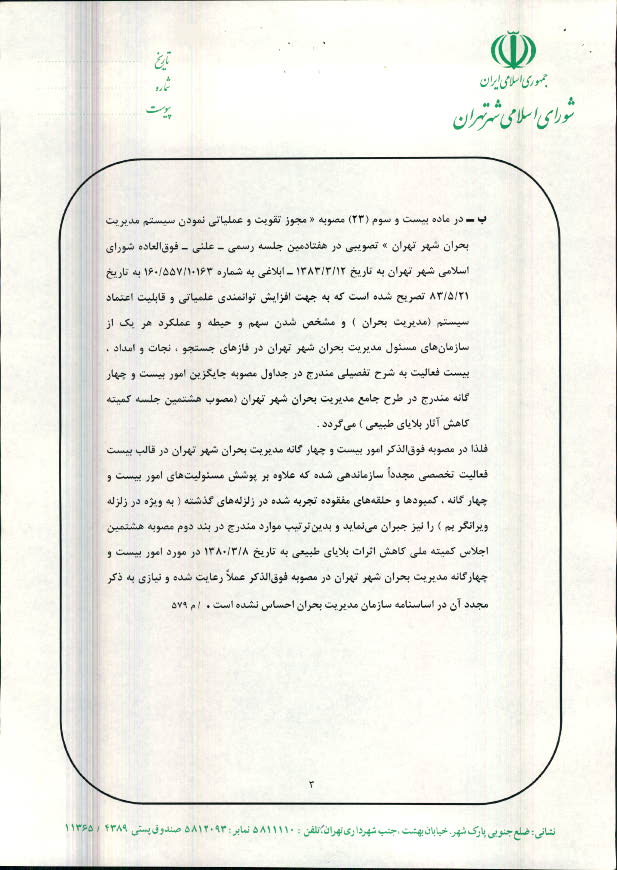 جمهوری اسلامی ایران
شورای اسلامی شهر تهران
تاریخ
شماره
پیوست
ب ـ در ماده بیست و سوم (۲۳) مصوبه « مجوز تقویت و عملیاتی نمودن سیستم مدیریت
بحران شهر تهران » تصویبی در هفتادمین جلسه رسمی ـ علنی ـ فوق‌العاده شورای
اسلامی شهر تهران به تاریخ ۱۳۸۳/۳/۱۲ ـ ابلاغی به شماره ۱۶۰/۵۵۷/۱۰۱۶۳ به تاریخ
۸۳/۵/۲۱ تصریح شده است که به جهت افزایش توانمندی علمیاتی و قابلیت اعتماد
سیستم (مدیریت بحران ) و مشخص شدن سهم و حیطه و عملکرد هر یک از
سازمان‌های مسئول مدیریت بحران شهر تهران در فازهای جستجو ، نجات و امداد ،
بیست فعالیت به شرح تفصیلی مندرج در جداول مصوبه جایگزین امور بیست و چهار
گانه مندرج در طرح جامع مدیریت بحران شهر تهران (مصوب هشتمین جلسه کمیته
کاهش آثار بلایای طبیعی ) می‌گردد .
فلذا در مصوبه فوق‌الذکر امور بیست و چهار گانه مدیریت بحران شهر تهران در قالب بیست
فعالیت تخصصی مجدداً سازماندهی شده که علاوه بر پوشش مسئولیت‌های امور بیست و
چهار گانه ، کمبودها و حلقه‌های مفقوده تجربه شده در زلزله‌های گذشته ( به ویژه در زلزله
ویرانگر بم ) را نیز جبران می‌نماید و بدین‌ترتیب موارد مندرج در بند دوم مصوبه هشتمین
اجلاس کمیته ملی کاهش اثرات بلایای طبیعی به تاریخ ۱۳۸۰/۳/۸ در مورد امور بیست و
چهارگانه مدیریت بحران شهر تهران در مصوبه فوق‌الذکر عملاً رعایت شده و نیازی به ذکر
مجدد آن در اساسنامه سازمان مدیریت بحران احساس نشده است . / م ۵۷۹
۳
نشانی: ضلع جنوبی پارک شهر، خیابان بهشت ، جنب شهرداری تهران، تلفن : ۵۸۱۱۱۱۰ نمابر : ۵۸۱۲۰۹۳ صندوق پستی ۴۳۸۹ / ۱۱۳۶۵